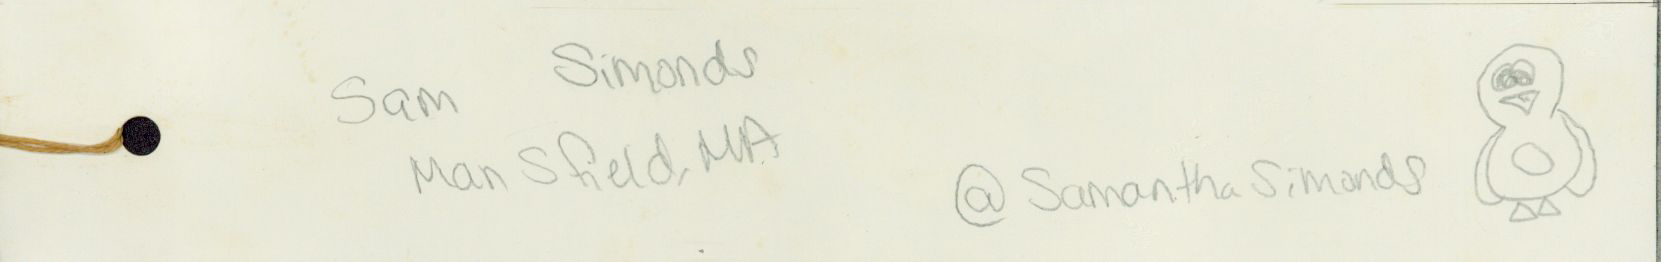 Sam Simonds
Mansfield, MA
@SamanthaSimonds